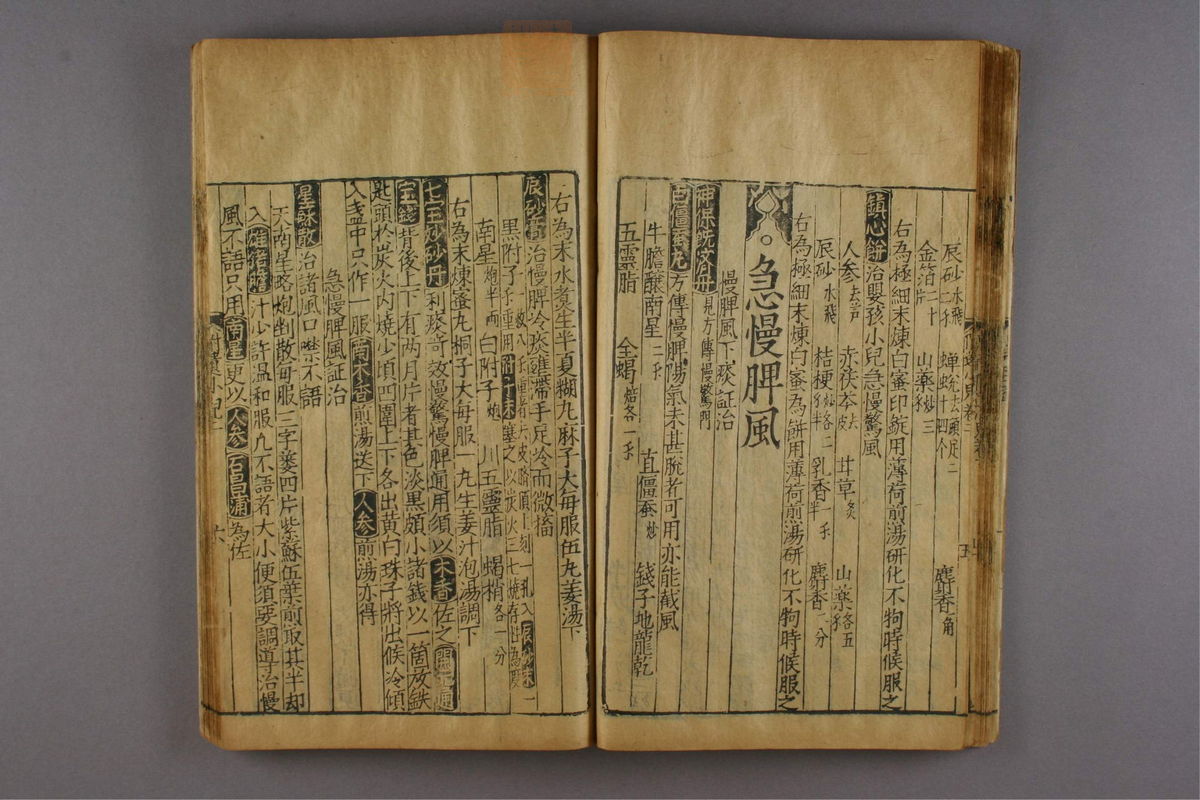 辰砂水飛二 蟬蛻去頭足二 麝香一角
金箔二十片 山藥炒三
右為極細末煉白蜜印錠用薄荷煎湯研化不狥時候服之
鎮心餅治嬰孩小兒急慢驚風
人參去芦 赤茯苓去皮 甘草炙 山藥各五
辰砂水飛 桔梗炒各二 乳香半 麝香一分
右為極細末煉白蜜為餅用薄荷煎湯研化不狥時候服之
急慢脾風
慢脾風下痰証治
見方傳慢驚門
方傳慢脾陽氣未甚脫者可用亦能截風
牛膽釀南星二 直僵蚕炒 錢子地龍乾
五靈脂 全蝎焙各一
右為末水煮生半夏糊丸麻子大每服伍丸姜湯下
辰砂膏治慢脾冷痰壅滯手足冷而微搐
黑附子 一孔入辰砂末一
入 附子末塞之以炭火三七燒存性為度
南星炮半兩 白附子炮 川五靈脂 蝎梢各一分
右為末煉蜜丸桐子大每服一丸生姜汁泡湯調下
七宝妙砂丹利痰奇效慢驚慢脾通用須以木香佐之開元通
宝錢背後上下有两月片者甚色淡黑頗小諸錢以一箇放鉄
匙頭於炭火内燒少頃四圍上下各出黄白珠子將出候冷傾
入盞中只作一服南木香煎湯送下人参煎湯亦得
急慢脾風証治
星蘇散治諸風口噤不語
天南星略炮剉散每服三字姜四片紫蘇伍葉煎取其半却
入雄猪膽汁少許温和服凡不語者大小便須要調導治慢
風不語只用南星更以人参石菖蒲為佐